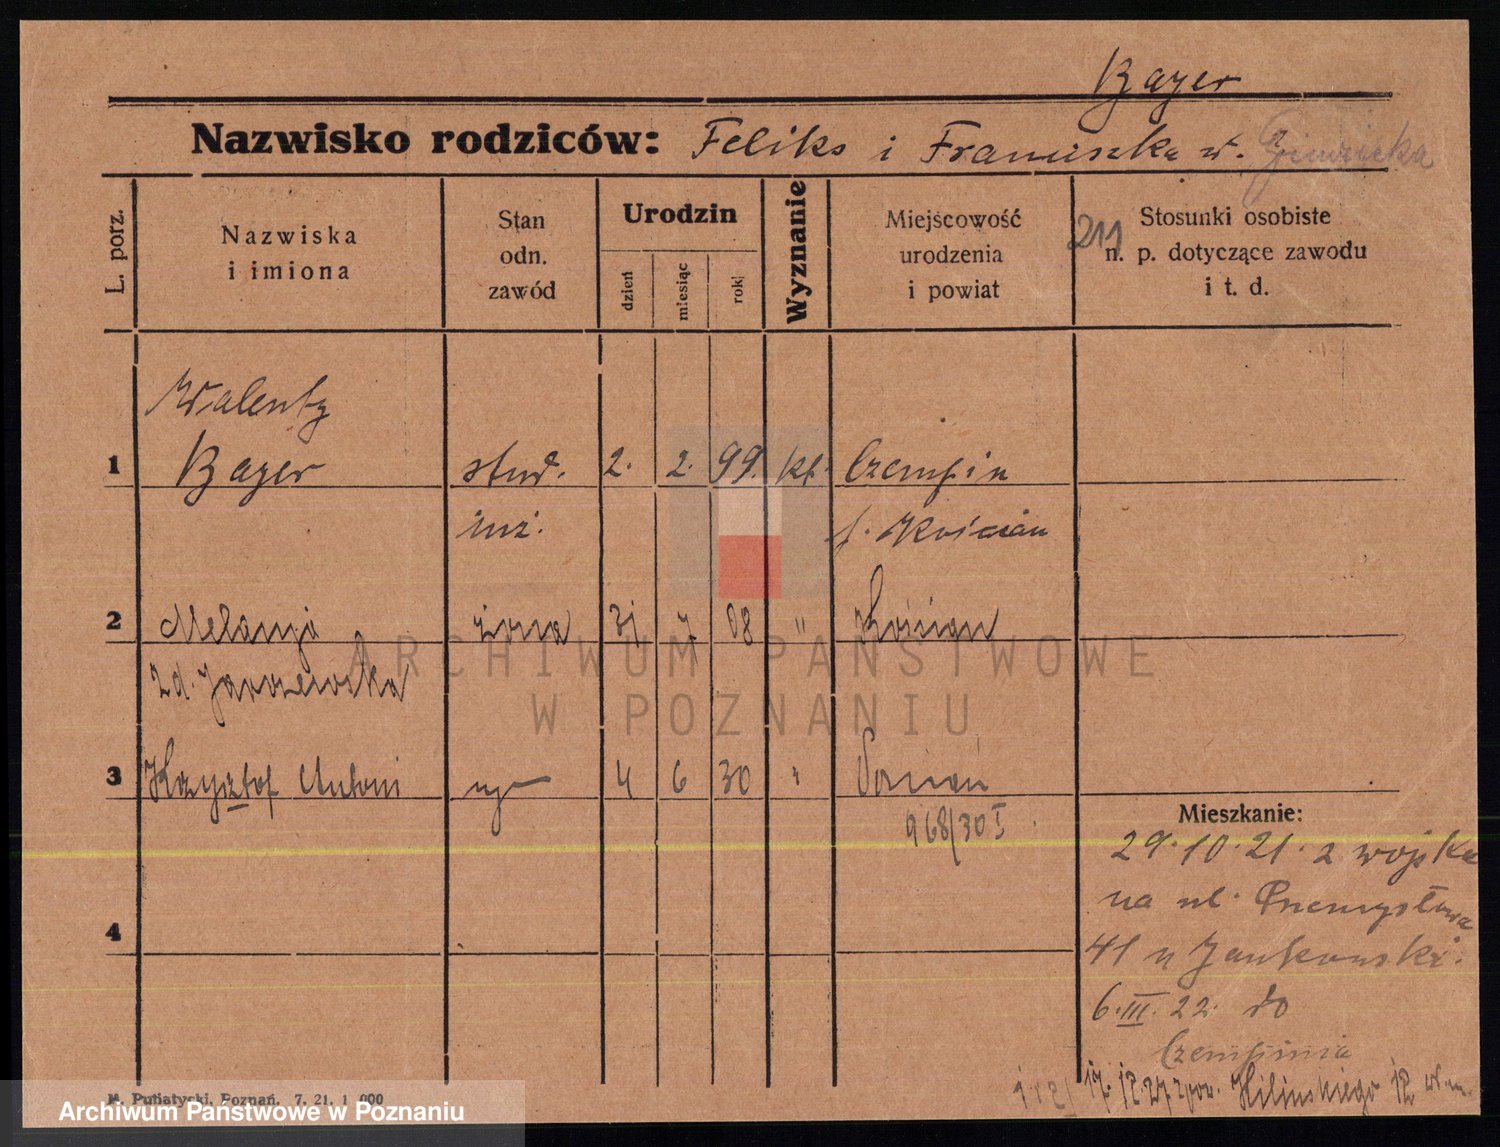 Bayer
Nazwisko rodziców: Feliks i Franciszka z d.
L. porz.
Nazwiska i imiona
Stan odn. zawód
Urodzin
dzień
miesiąc
rok
Wyznanie
Miejscowość urodzenia i powiat
211
Stosunki osobiste n. p. dotyczące zawodu i t. d.
Walenty
1 Bayer stud. 2. 2. 99. kt. Czempin
inż. p. Kościan
2 Melanja żona 31 7 08 " Kościan
zd. Jarczewska
3 Krzysztof Antoni syn 4 6 30 " Poznań
968/30 I
4
Mieszkanie:
29.10.21. z wojska
na ul. Przemysłowa
41 u Jankowski.
6.III.22. do
Czempinia
17.12.27 Kilińskiego 12
M. Putiatycki, Poznań. 7. 21. 1 000
ARCHIWUM PAŃSTWOWE
W POZNANIU
Archiwum Państwowe w Poznaniu